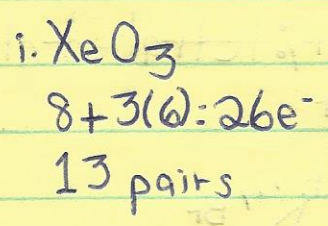 i. XeO3
8+3(6)=26e-
13 pairs